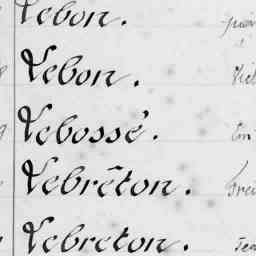 Lebon.
Lebon.
Lebossé.
Lebrêton.
Lebreton.